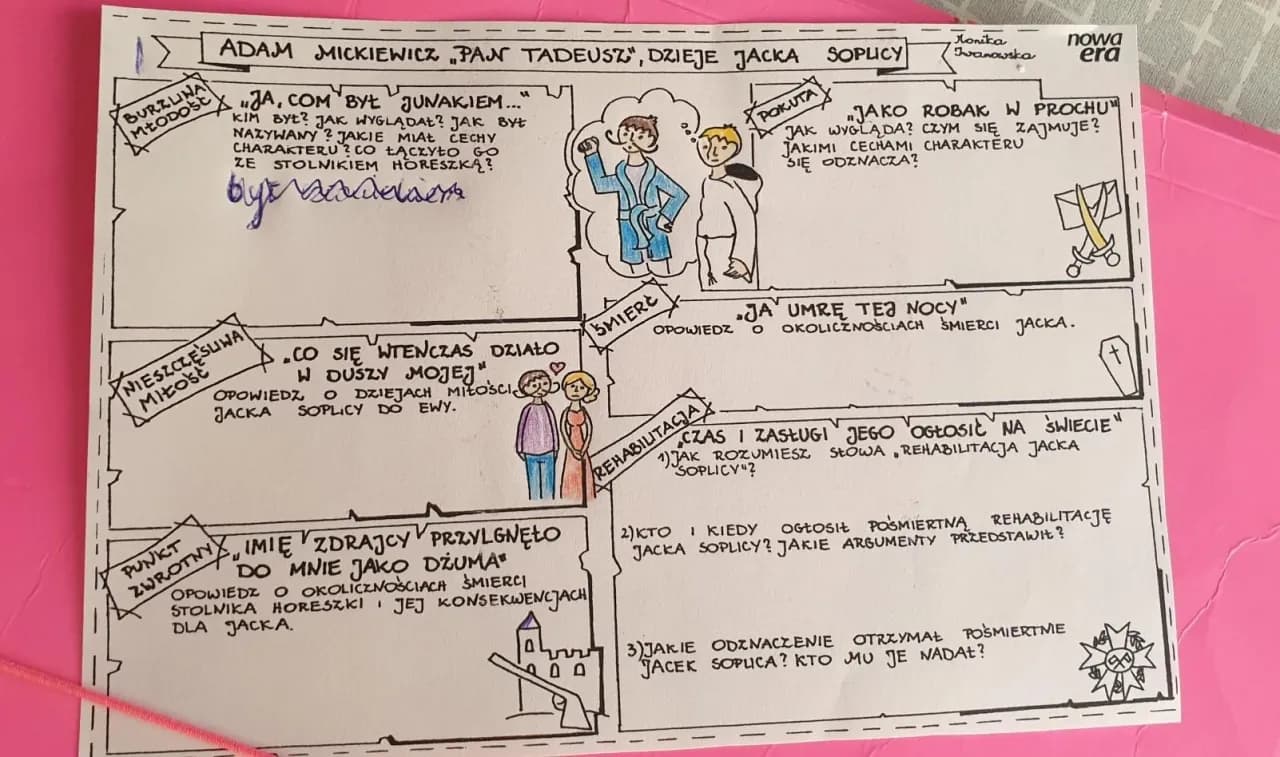 ADAM MICKIEWICZ „PAN TADEUSZ", DZIEJE JACKA SOPLICY
Monika
Iwanowska
nowa
era
BURZLIWA
MŁODOŚĆ
„JA, COM BYŁ JUNAKIEM..."
KIM BYŁ? JAK WYGLĄDAŁ? JAK BYŁ
NAZYWANY? JAKIE MIAŁ CECHY
CHARAKTERU? CO ŁĄCZYŁO GO
ZE STOLNIKIEM HORESZKĄ?
był
NIESZCZĘŚLIWA
MIŁOŚĆ
„CO SIĘ WTENCZAS DZIAŁO
W DUSZY MOJEJ"
OPOWIEDZ O DZIEJACH MIŁOŚCI
JACKA SOPLICY DO EWY.
PUNKT
ZWROTNY
„IMIĘ ZDRAJCY PRZYLGNĘŁO
DO MNIE JAKO DŻUMA"
OPOWIEDZ O OKOLICZNOŚCIACH ŚMIERCI
STOLNIKA HORESZKI I JEJ KONSEKWENCJACH
DLA JACKA.
POKUTA
„JAKO ROBAK W PROCHU"
JAK WYGLĄDA? CZYM SIĘ ZAJMUJE?
JAKIMI CECHAMI CHARAKTERU
SIĘ ODZNACZA?
ŚMIERĆ
„JA UMRĘ TEJ NOCY"
OPOWIEDZ O OKOLICZNOŚCIACH ŚMIERCI JACKA.
REHABILITACJA
„CZAS I ZASŁUGI JEGO OGŁOSIĆ NA ŚWIECIE"
1) JAK ROZUMIESZ SŁOWA „REHABILITACJA JACKA
SOPLICY"?
2) KTO I KIEDY OGŁOSIŁ POŚMIERTNĄ REHABILITACJĘ
JACKA SOPLICY? JAKIE ARGUMENTY PRZEDSTAWIŁ?
3) JAKIE ODZNACZENIE OTRZYMAŁ POŚMIERTNIE
JACEK SOPLICA? KTO MU JE NADAŁ?